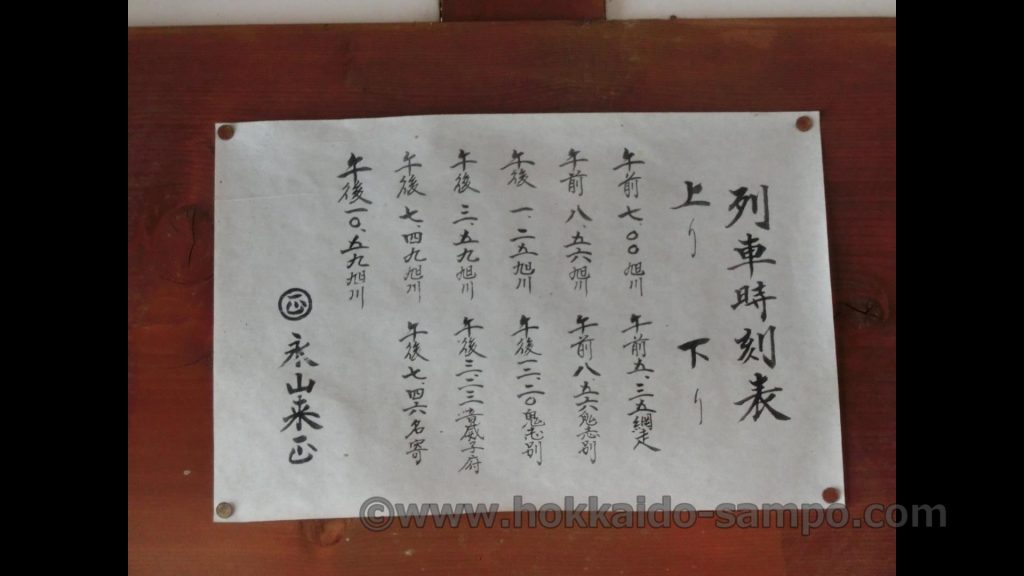 列車時刻表
上り 下り
午前七.〇〇旭川 午前五.三五網走
午前八.五六旭川 午前八.五六鬼志別
午後一.二五旭川 午後一二.二〇鬼志別
午後三.五九旭川 午後三.二三音威子府
午後七.四九旭川 午後七.四六名寄
午後一〇.五九旭川
㊣ 永山来正
©www.hokkaido-sampo.com